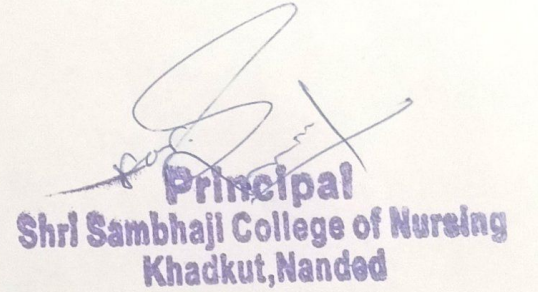 Principal
Shri Sambhaji College of Nursing
Khadkut,Nanded